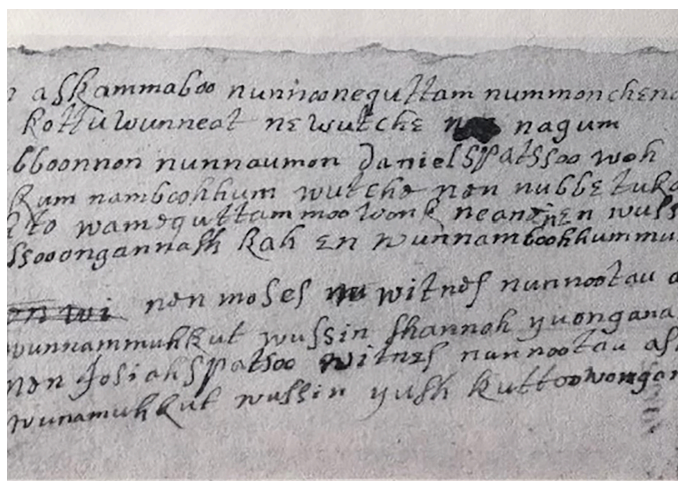 n askammaboo nunnoonequttam nummonchena
kottuwunneat newutche nagum
bboonnon nunnaumon daniel spatssoo woh
kum nambookhum wutche nen nubbetuko
kto wamequttammoowonk neanenen wuss
ssooongannash kah en wunnambookhummu
nen moses witnes nunnootau a
wunnammuhkut wussin shannoh yuongana
nen Josiah spatsoo witnes nunnootau as
wunamuhkut wussin yush kuttoowongan